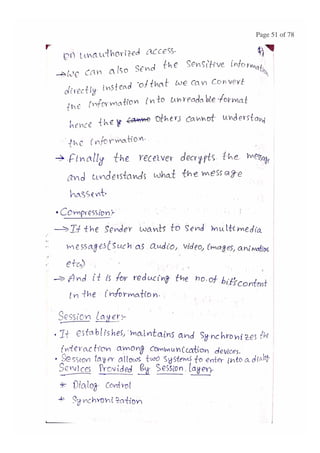 Page 51 of 78
on unauthorized access.
→ We can also send the sensitive information
directly instead of that we can convert
the information into unreadable format
hence they others cannot understand
the information.
→ Finally the receiver decrypts the message
and understands what the message
has sent.
• Compression:-
→ If the sender wants to send multimedia
messages (such as audio, video, images, animation
etc)
→ And it is for reducing the no. of bits content
in the information.
Session Layer:-
• It establishes, maintains and synchronizes the
interaction among communication devices.
• Session layer allows two systems to enter into a dialog
Services Provided By Session layer
* Dialog control
* Synchronization